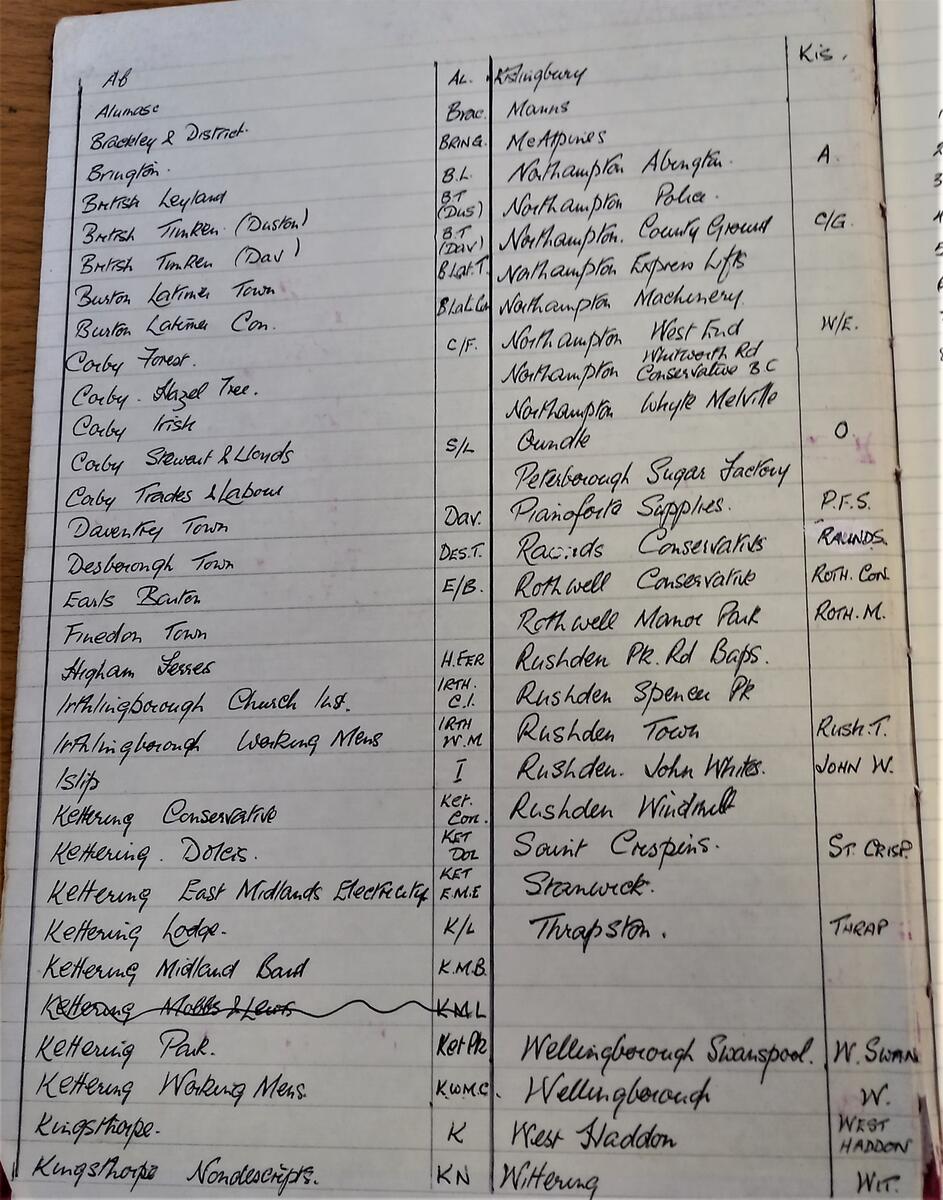 Ab
Alumasc AL. Kislingbury Kis.
Brackley & District. Brac. Manns
Brington. BRING. McAlpines
British Leyland B.L. Northampton Abington. A.
British Timken (Duston) B.T (Dus) Northampton Police.
British Timken (Dav) B.T (Dav) Northampton. County Ground C/G.
Burton Latimer Town B Lat. T. Northampton Express Lifts
Burton Latimer Con. B Lat. Con Northampton Machinery.
Corby Forest. C/F. Northampton West End W/E.
Corby. Hazel Tree. Northampton Whitworth Rd Conservative B C
Corby Irish Northampton Whyte Melville
Corby Stewart & Lloyds S/L Oundle O.
Corby Trades & Labour Peterborough Sugar Factory
Daventry Town Dav. Pianoforte Supplies. P.F.S.
Desborough Town DES.T. Raunds Conservative RAUNDS.
Earls Barton E/B. Rothwell Conservative ROTH. CON.
Finedon Town Rothwell Manor Park ROTH. M.
Higham Ferrers H.FER Rushden Pk. Rd Baps.
Irthlingborough Church Inst. IRTH. C.I. Rushden Spencer Pk
Irthlingborough Working Mens IRTH W.M Rushden Town Rush.T.
Islip I Rushden. John Whites. JOHN W.
Kettering Conservative Ket. Con. Rushden Windmill
Kettering. Dolcis. KET DOL Saint Crespins. ST. CRISP.
Kettering East Midlands Electricity KET E.M.E Stanwick.
Kettering Lodge. K/L Thrapston. THRAP
Kettering Midland Band K.M.B.
Kettering Mobbs & Lewis K M L
Kettering Park. Ket Pk Wellingborough Swanspool. W. SWAN
Kettering Working Mens. K.W.M.C. Wellingborough W.
Kingsthorpe. K West Haddon WEST HADDON
Kingsthorpe Nondescripts. KN Wittering WIT.